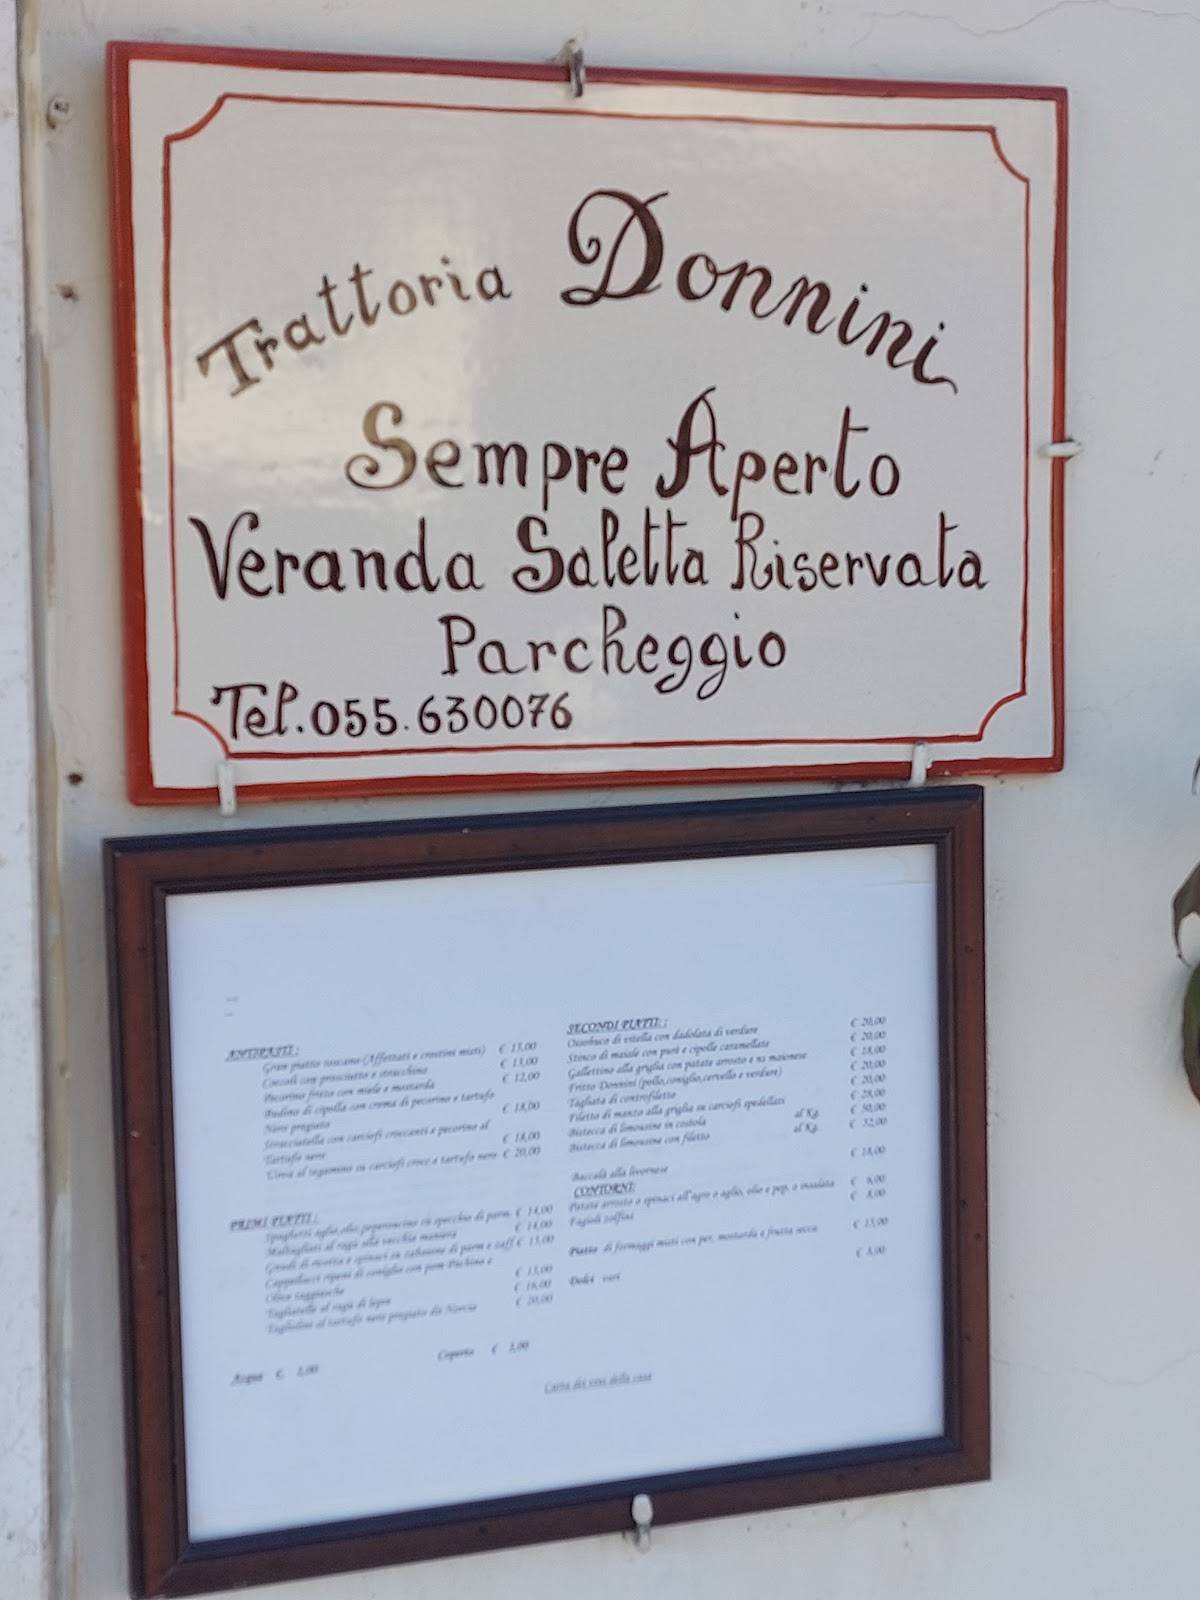 Trattoria Donnini
Sempre Aperto
Veranda Saletta Riservata
Parcheggio
Tel.055.630076
ANTIPASTI:
Gran piatto toscano (Affettati e crostini misti) € 15,00
Coccoli con prosciutto e stracchino € 13,00
Pecorino fritto con miele e mostarda € 12,00
Budino di cipolla con crema di pecorino e tartufo
Nero pregiato € 18,00
Stracciatella con carciofi croccanti e pecorino al
Tartufo nero € 18,00
Uova al tegamino su carciofi crocc.e tartufo nero € 20,00
PRIMI PIATTI:
Spaghetti aglio,olio,peperoncino su specchio di parm. € 14,00
Maltagliati al ragù alla vecchia maniera € 14,00
Gnudi di ricotta e spinaci su zabaione di parm e zaff € 15,00
Cappellacci ripieni di coniglio con pom Pachino e
Olive taggiasche € 15,00
Tagliatelle al ragù di lepre € 16,00
Tagliolini al tartufo nero pregiato di Norcia € 20,00
Acqua €
Coperto €
SECONDI PIATTI:
Ossobuco di vitella con dadolata di verdure € 20,00
Stinco di maiale con purè e cipolle caramellate € 20,00
Gallettino alla griglia con patate arrosto e ns maionese € 18,00
Fritto Donnini (pollo,coniglio,cervello e verdure) € 20,00
Tagliata di controfiletto € 20,00
Filetto di manzo alla griglia su carciofi spadellati € 28,00
Bistecca di limousine in costola al Kg. € 50,00
Bistecca di limousine con filetto al Kg. € 52,00
Baccalà alla livornese € 18,00
CONTORNI:
Patate arrosto o spinaci all'agro o aglio, olio e pep. o insalata € 6,00
Fagioli zolfini € 8,00
Piatto di formaggi misti con per, mostarda e frutta secca € 15,00
Dolci vari € 8,00
Carta dei vini della casa